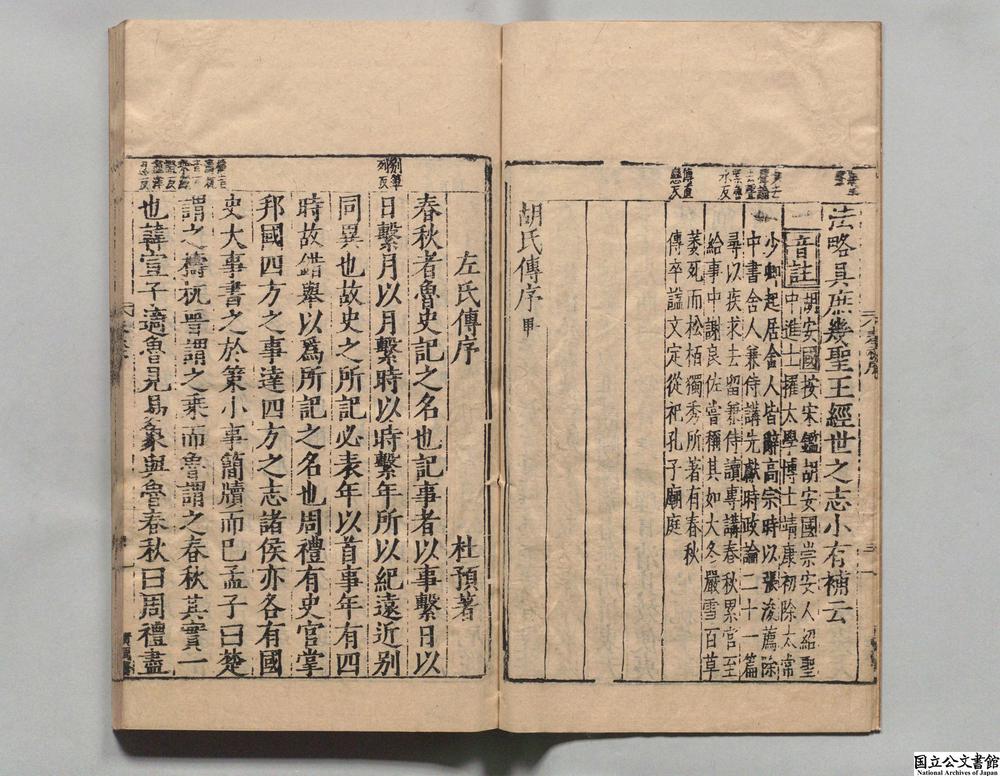 法略具庶幾聖王經世之志小有補云
音註
胡安國按宋鑑胡安國崇安人紹聖
中進士擢太學博士靖康初除太常
少卿起居舍人皆辭高宗時以張浚薦除
中書舍人兼侍講先獻時政論二十一篇
尋以疾求去留兼侍讀專講春秋累官至
給事中謝良佐嘗稱其如大冬嚴雪百草
萎死而松栢獨秀所著有春秋
傳卒諡文定從祀孔子廟庭
胡氏傳序畢
左氏傳序
杜預著
春秋者魯史記之名也記事者以事繫日以
日繫月以月繫時以時繫年所以紀遠近別
同異也故史之所記必表年以首事年有四
時故錯舉以爲所記之名也周禮有史官掌
邦國四方之事達四方之志諸侯亦各有國
史大事書之於策小事簡牘而已孟子曰楚
謂之檮杌晉謂之乘而魯謂之春秋其實一
也韓宣子適魯見易象與魯春秋曰周禮盡
別筆
列反
国立公文書館
National Archives of Japan